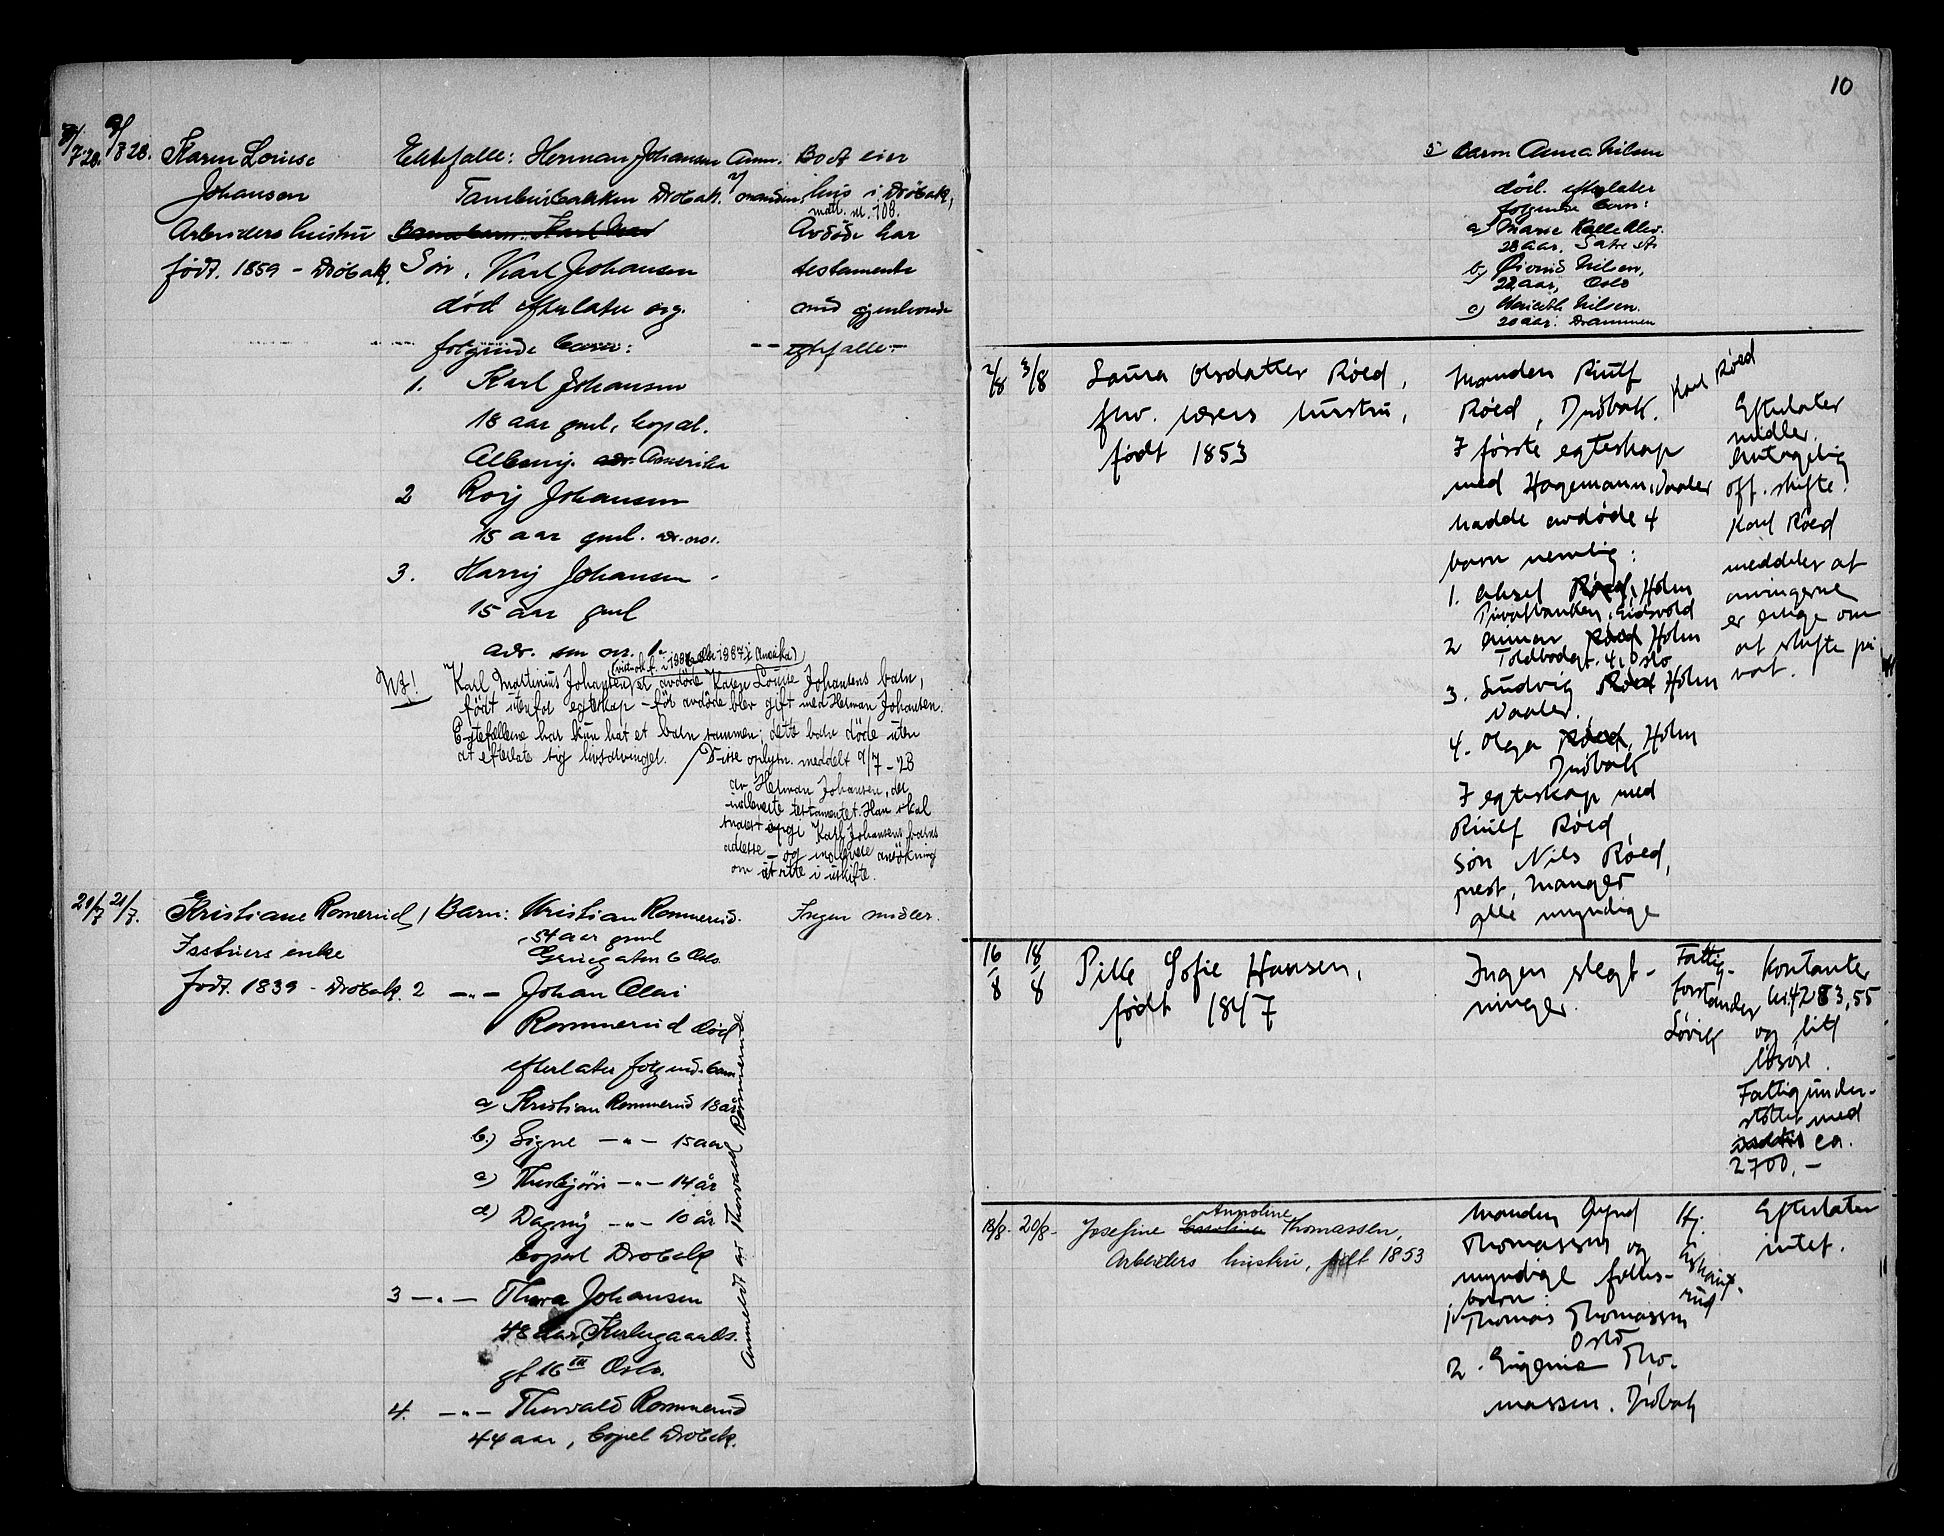 Karen Louise
Johansen
Arbeiders hustru
født. 1859 - Drøbak.
Ektefalle: Herman Johansen
Tamburbakken Drøbak.
Anm.
av manden.
Boet eier
hus i Drøbak,
matr. nr. 108.
Avdøde har
testamente
med gjenlevende
egtefalle.-
Søn, Karl Johansen
død efterlater sig
følgende barn:
1. Karl Johansen
18 aar gml, bopæl.
Albany. Amerika
2 Roy Johansen
15 aar gml.
3. Harry Johansen
15 aar gml
adr. som nr. 1.
NB! Karl Martinius Johansen er avdøde Karen Louise Johansens barn,
født utenfor egteskap - før avdøde blev gift med Herman Johansen.
Egtefællene har kun hat et barn sammen; dette barn døde uten
at efterlate sig livsarvinger. / Disse oplysn. meddelt 9/7-28
av Herman Johansen, der
indleverte testamentet. Han skal
snarest opgi Karl Johansens barns
adresse - og indlevere ansökning
om at sitte i uskifte.
21/7 21/7.
Kristiane Romerud,
Isstuers enke
født. 1839 - Drøbak.
1 Barn: Kristian Rommerud.
54 aar gml
Griegaten 6 Oslo.
Ingen midler.
2 -"- Johan Olai
Rommerud død
efterlater følgende barn
a) Kristian Rommerud 18 aar
b.) Signe -"- 15 aar
c) Thorbjørn -"- 14 år
d) Dagny -"- 10 år
bopæl Drøbak
3 -"- Thora Johansen
48 aar, Kirkegaards.
gt 16 III Oslo.
4. -"- Thorvald Rommerud
44 aar, bopel Drøbak.
Anmeldt av Thorvald Rommerud.
10
5 Barn Anna Nilsen
død. efterlater
følgende barn:
a) Marie
28 aar,
b) Øivind Nilsen,
22 aar, Oslo
c) Nilsen.
20 aar. Drammen
2/8 3/8
Laura Olsdatter Røed,
fhv. hustru,
født 1853
Manden Rulf
Røed, Drøbak.
I første egteskap
med Hagemann, Vaaler
hadde avdøde 4
barn nemlig:
1. Aksel Røed, Holm
Privatbanken, Eidsvold
2 Einar Røed Holm
Toldbodgt. 4, Oslo
3. Ludvig Røed Holm
Vaaler.
4. Olga Røed, Holm
Drøbak
I egteskap med
Rulf Røed
søn Nils Røed,
prest, Manger
alle myndige
Karl Røed
Efterlater
midler.
Antagelig
off. skifte.
Karl Røed
meddeler at
arvingerne
er enige om
at skifte pri
vat.
16/8 18/8
Pille Sofie Hansen,
født 1847
Ingen slegt-
ninger.
Fattig-
forstander
Løvik
Kontanter
kr. 4283,55
og litt
løsøre.
Fattigunder-
støttet med
ca.
2700.-
18/8. 20/8-
Josefine Caroline Annoline Thomassen,
Arbeiders hustru, født 1853
Manden
Thomassen og
myndige felles-
barn:
1. Thomas Thomassen
Oslo
2. Eugenie Tho-
massen. Drøbak
Efterlater
intet.